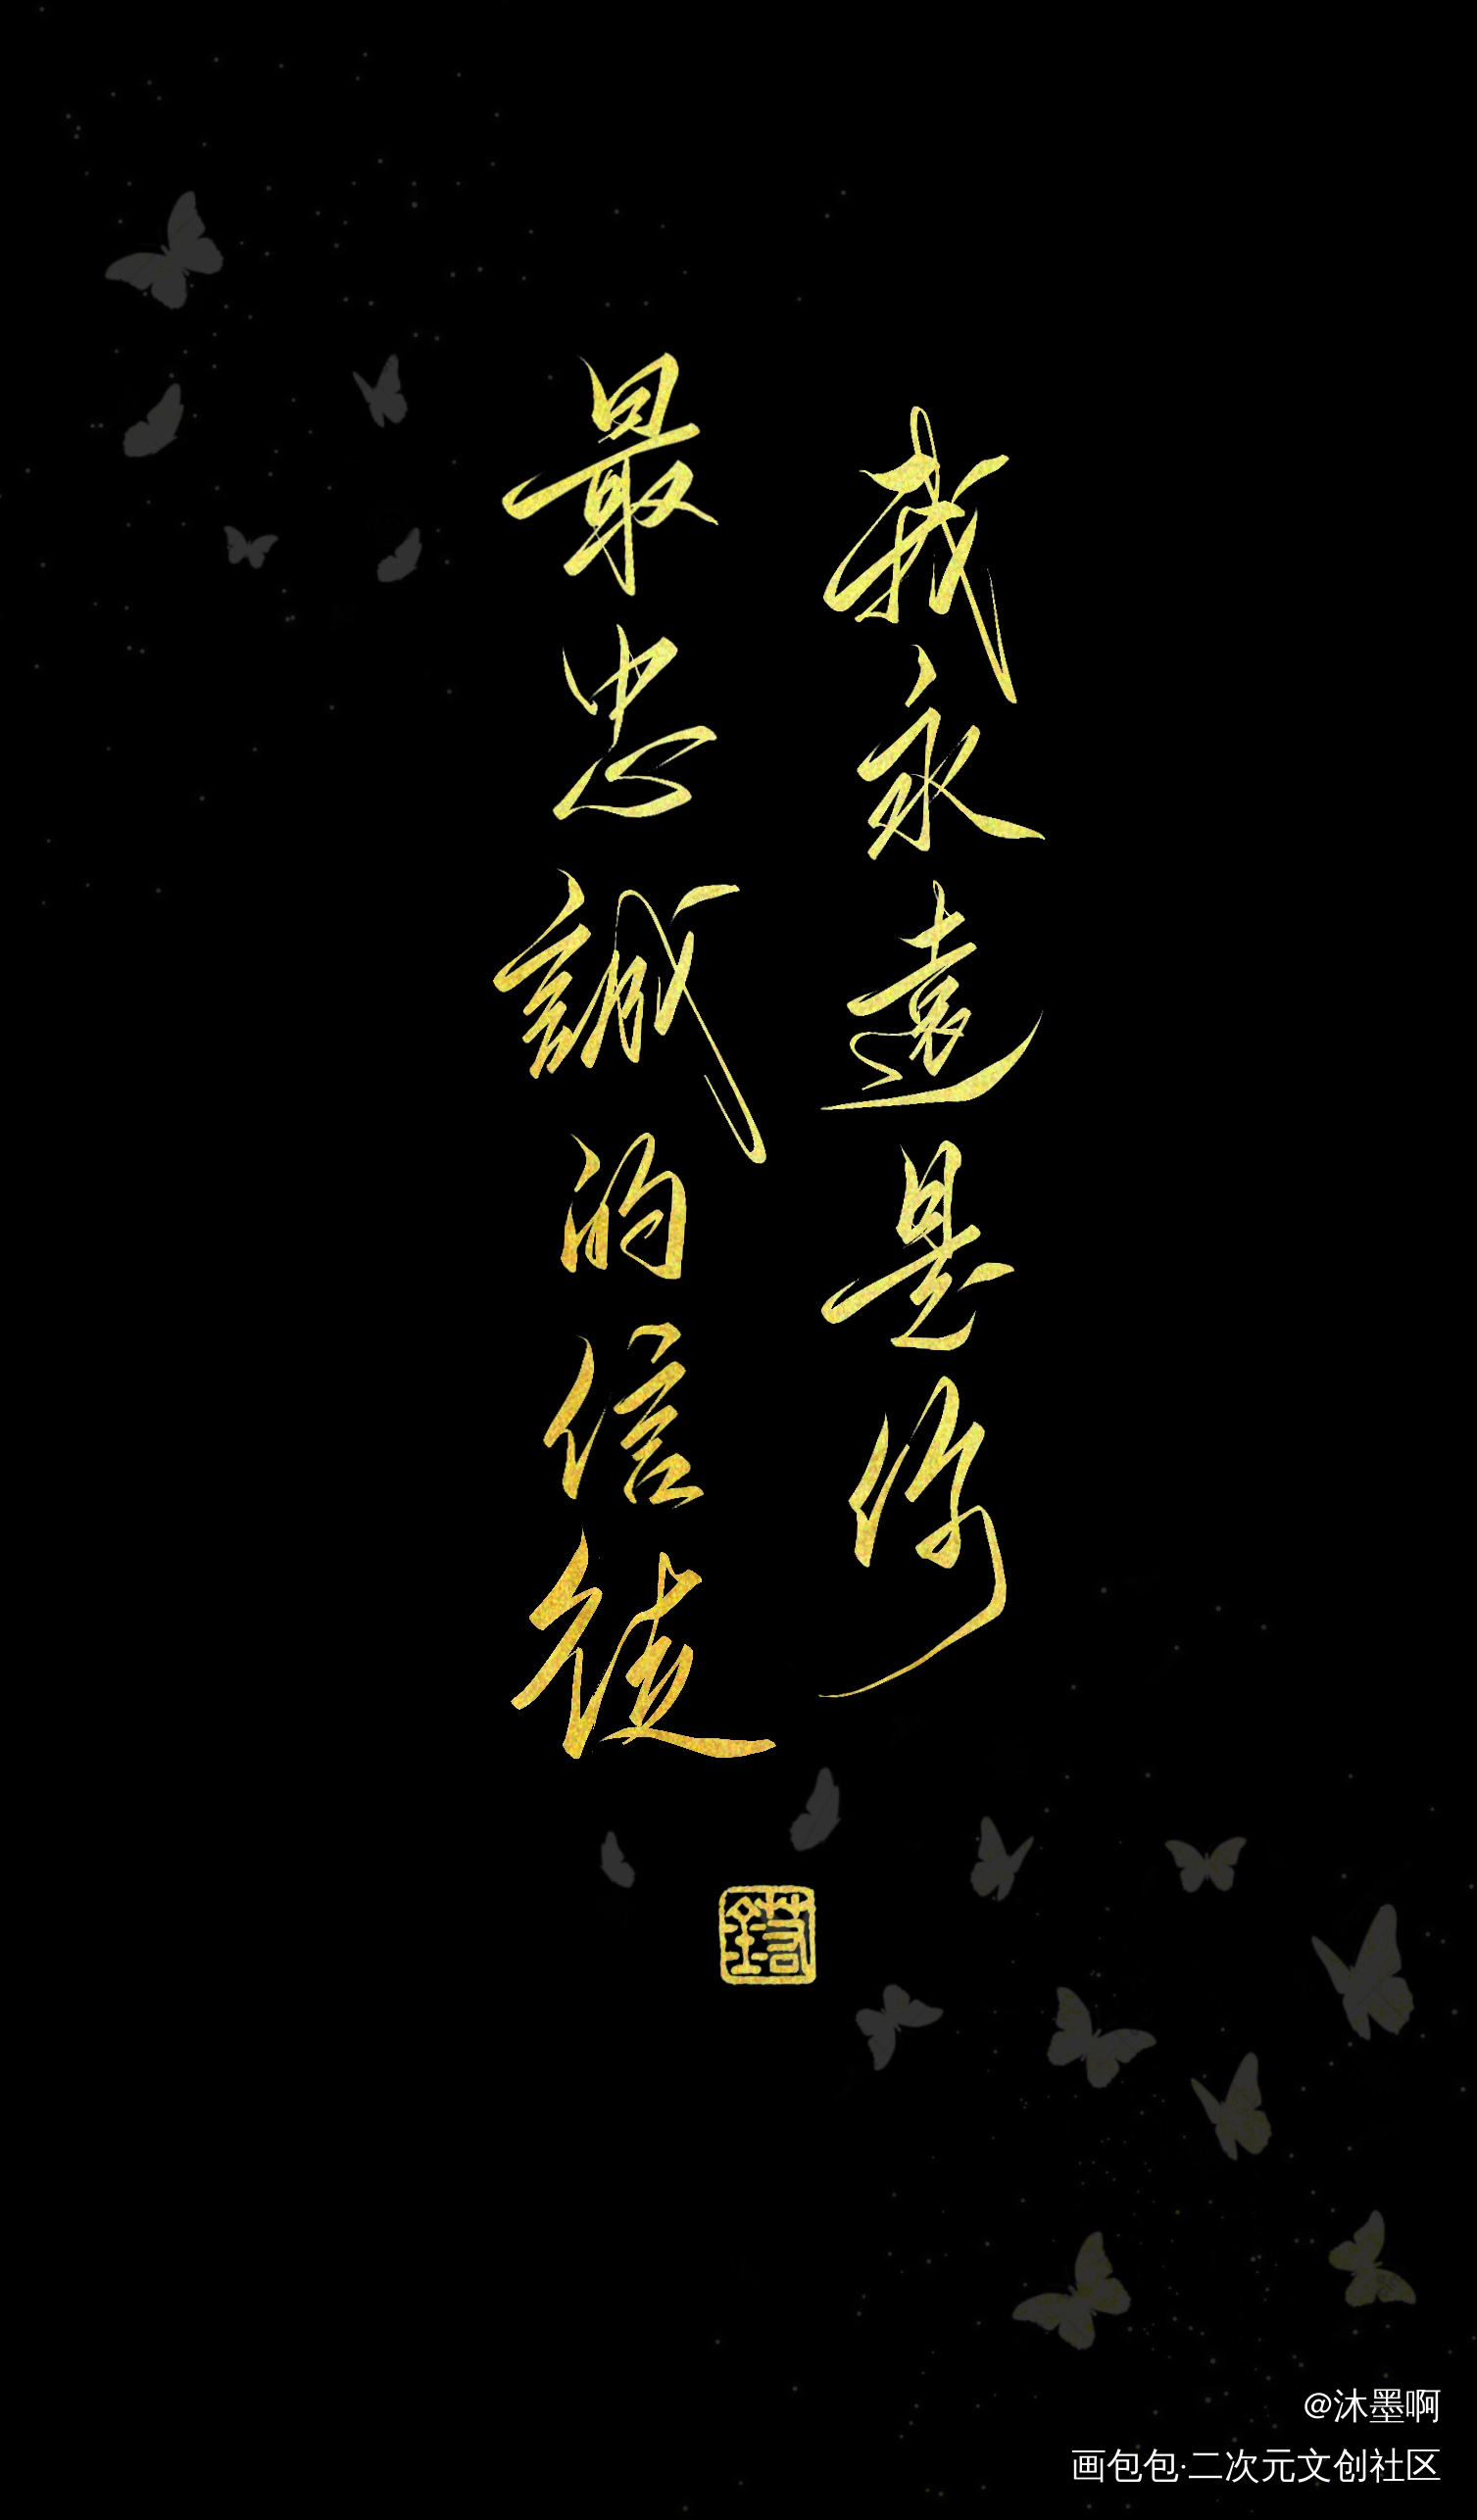 我永遠是你
最忠誠的信徒
@沐墨啊
画包包·二次元文创社区